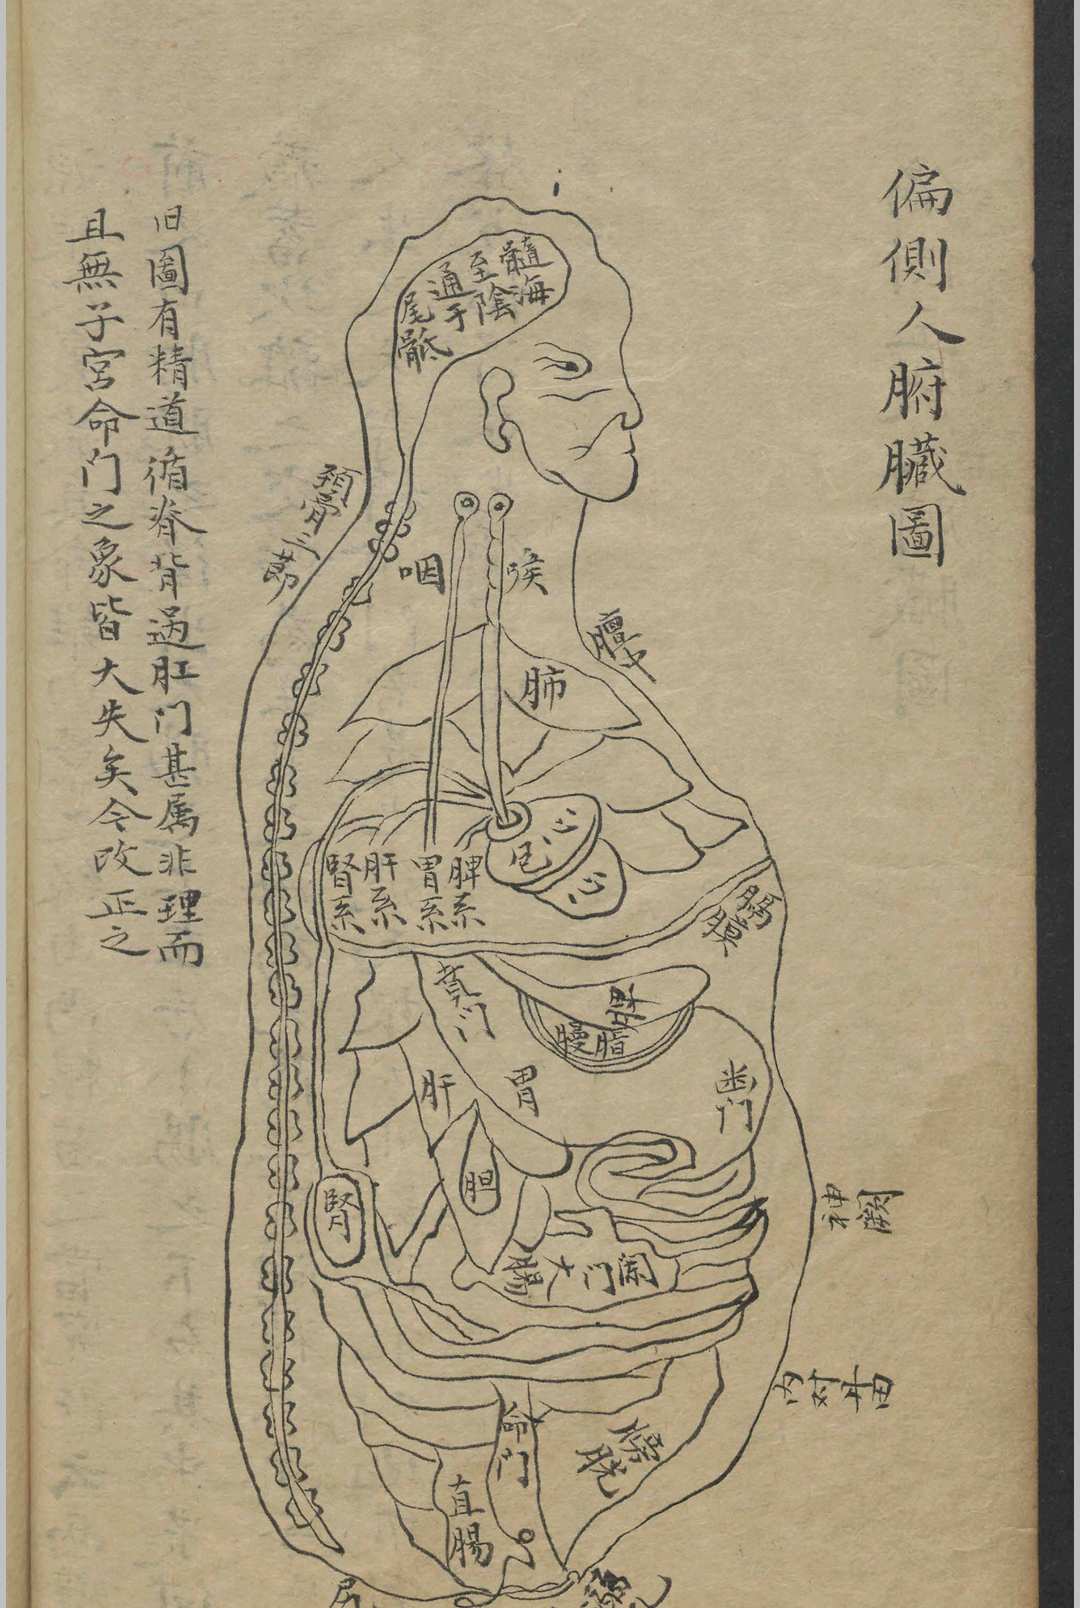 偏側人腑臟圖
髓海
至陰
通于
尾骶
項骨三節
咽
喉
膻中
肺
心
包
心
腎系
肝系
胃系
脾系
膈膜
賁门
脾
胃
肝
幽门
胆
腎
神闕
闌门
大腸
命门
膀胱
直腸
旧圖有精道循脊背过肛门甚属非理而
且無子宮命门之象皆大失矣今改正之